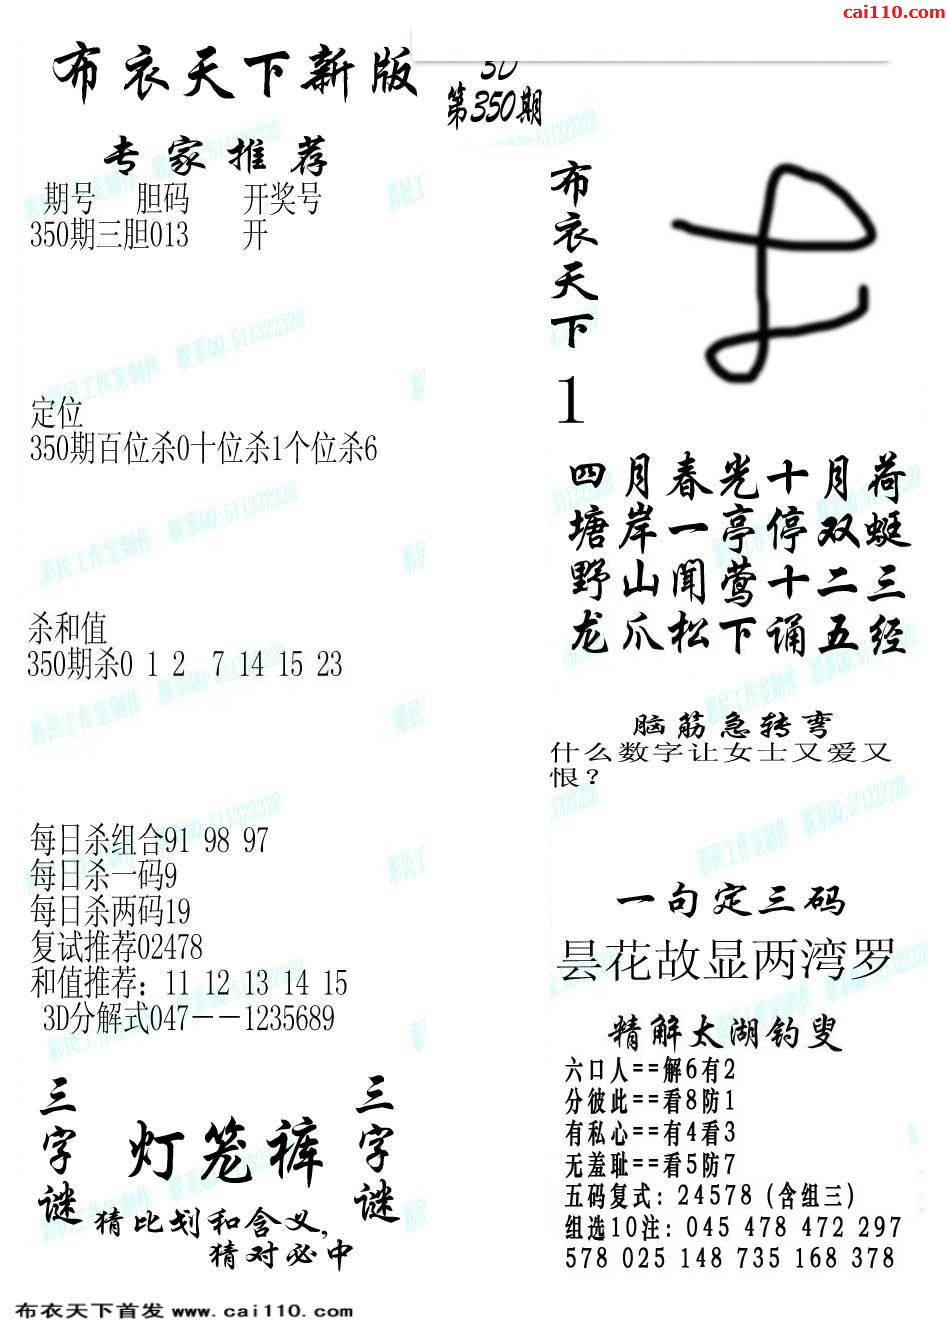 cai110.com
布衣天下新版
3D
第350期
专家推荐
期号 胆码 开奖号
350期三胆013 开
定位
350期百位杀0十位杀1个位杀6
杀和值
350期杀0 1 2 7 14 15 23
每日杀组合91 98 97
每日杀一码9
每日杀两码19
复试推荐02478
和值推荐：11 12 13 14 15
3D分解式047——1235689
三字谜
灯笼裤
三字谜
猜比划和含义，
猜对必中
布衣天下
1
四月春光十月荷
塘岸一亭停双蜓
野山闻莺十二三
龙爪松下诵五经
脑筋急转弯
什么数字让女士又爱又
恨？
一句定三码
昙花故显两湾罗
精解太湖钓叟
六口人==解6有2
分彼此==看8防1
有私心==有4看3
无羞耻==看5防7
五码复式：24578（含组三）
组选10注：045 478 472 297
578 025 148 735 168 378
彩民工作室制作 联系QQ:511322328
布衣天下首发 www.cai110.com